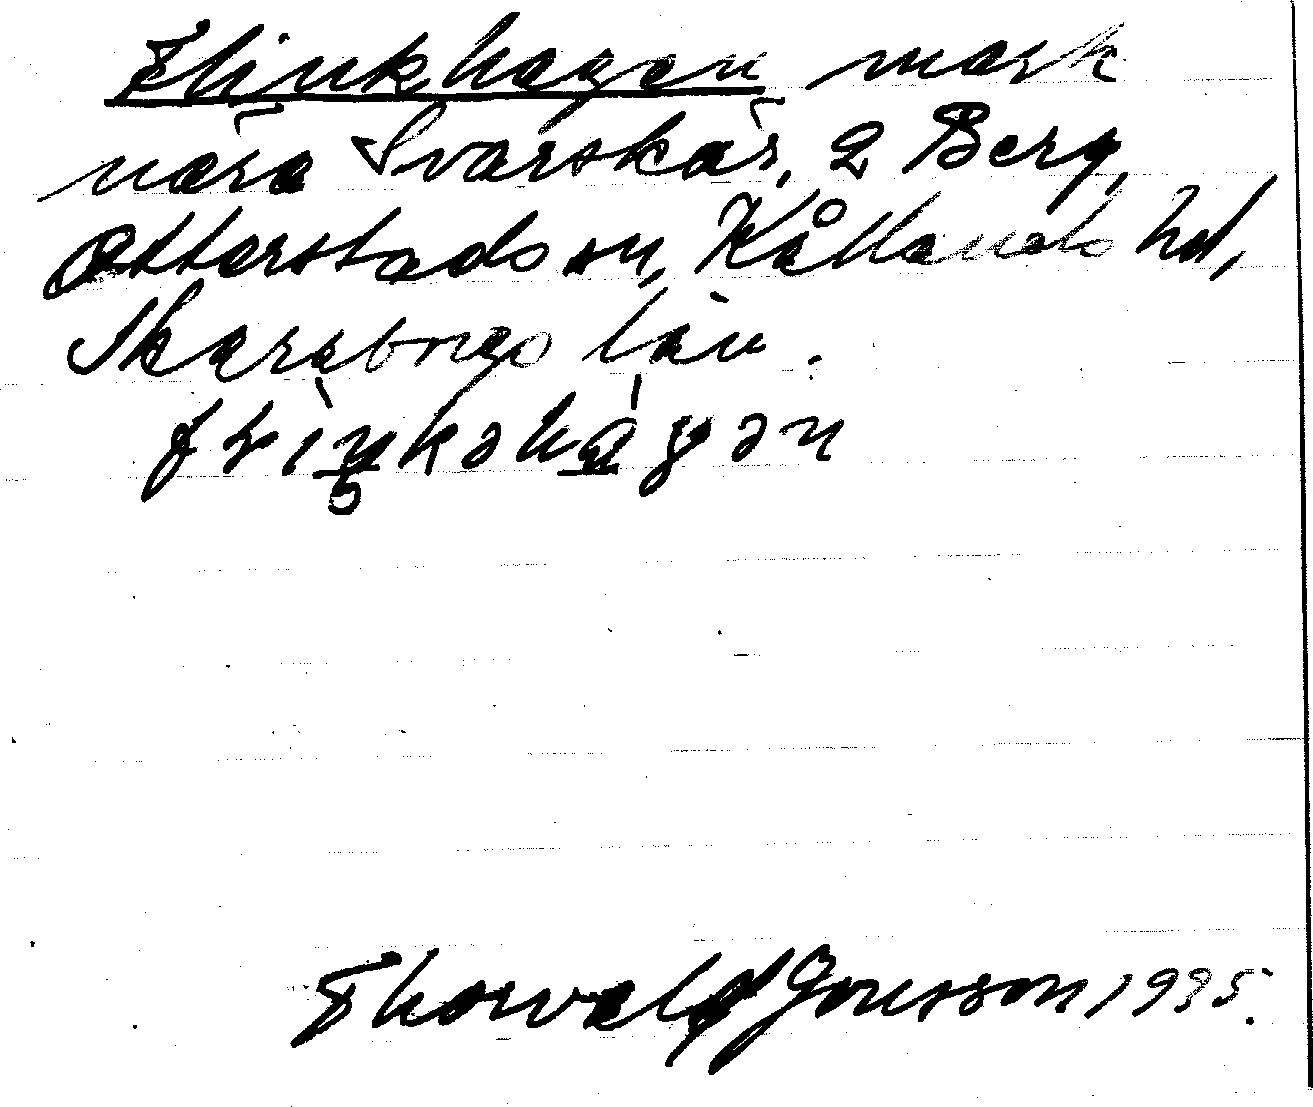 Flinkhagen mark
nära Svarskär, 2 Berg,
Otterstads sn, Kållands hd,
Skaraborgs län.
Thorvald Jonsson 1935.